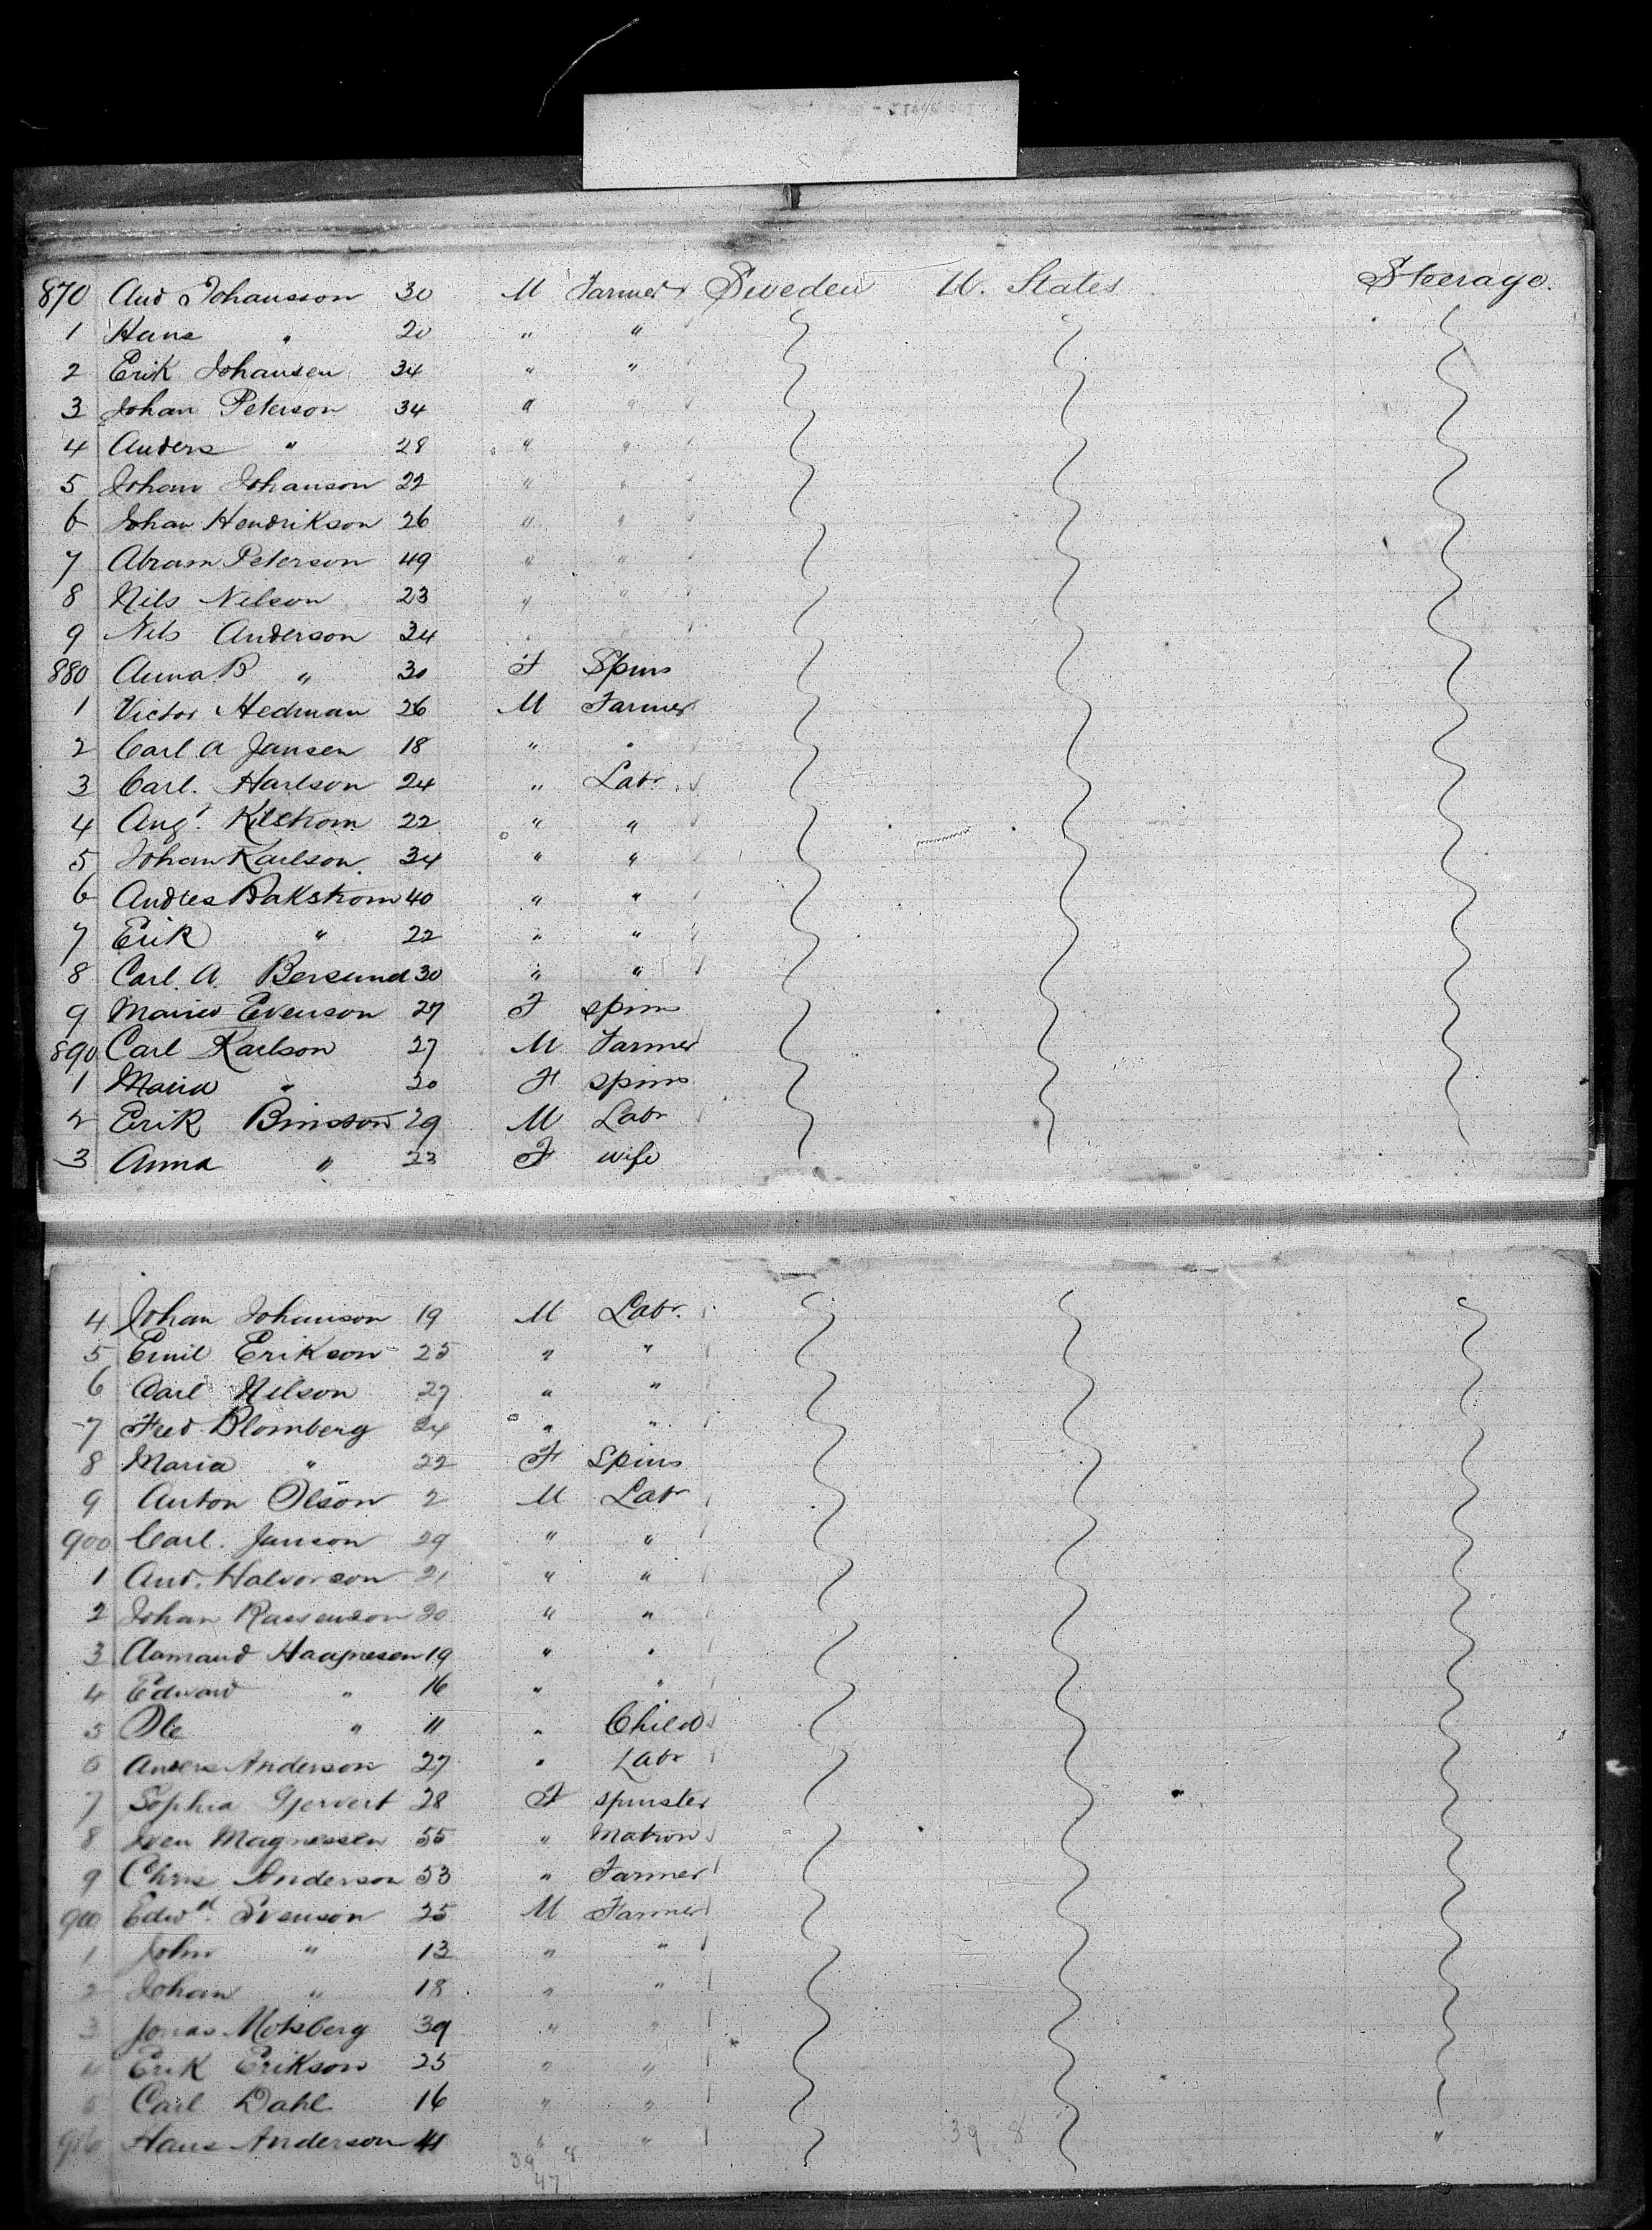 870 And Johansson 30 M Farmer Sweden U. States Steerage.
1 Hans " 20 " "
2 Erik Johansen 34 " "
3 Johan Peterson 34 " "
4 Anders " 28 " "
5 Johan Johanson 22 " "
6 Johan Hendrikson 26 " "
7 Abram Peterson 49 " "
8 Nils Nelson 23 " "
9 Nils Anderson 34 " "
880 Anna B " 30 F Spins
1 Victor Hedman 26 M Farmer
2 Carl A Jansen 18 " "
3 Carl. Harlson 24 " Labr
4 Augt. Kilstrom 22 " "
5 Johan Karlson 34 " "
6 Andres Bakstrom 40 " "
7 Erik " 22 " "
8 Carl. A. Bersund 30 " "
9 Evenson 27 F spins
890 Carl Karlson 27 M Farmer
1 Maria " 20 F spins
2 Erik Binsson 29 M Labr
3 Anna " 23 F wife
4 Johan Johanson 19 M Labr.
5 Emil Erikson 25 " "
6 Carl Nilson 27 " "
7 Fred Blomberg 24 " "
8 Maria " 22 F Spins
9 Anton Olson 2 M Labr
900 Carl. Janson 29 " "
1 And. Halvorson 21 " "
2 Johan 20 " "
3 Aamand Haagnesen 19 " "
4 Edward " 16 " "
5 Ole " 11 " Child
6 Anders Anderson 27 " Labr
7 Sophia Gjervert 28 F spinster
8 Magnessen 55 " Matron
9 Chris Anderson 53 " Farmer
910 Edwd. Svenson 25 M Farmer
1 John " 13 " "
2 Johan " 18 " "
3 Jonas Motsberg 39 " "
4 Erik Erikson 25 " "
5 Carl Dahl 16 " "
916 Hans Anderson 41 " " 39 8 "
39 8
47